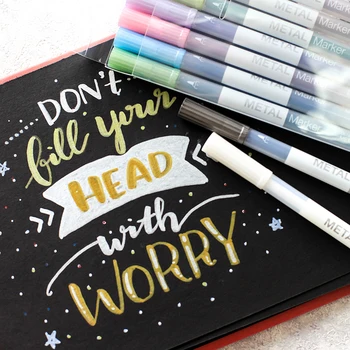 DON't
fill your
HEAD
with
WORRY
METAL Marker
METAL Marker
METAL Marker
METAL Marker
METAL Marker
METAL
METAL